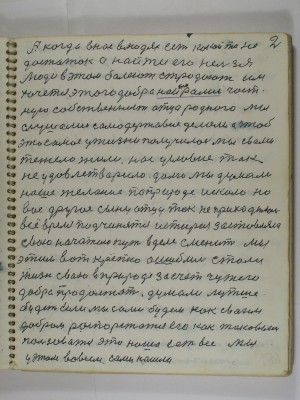 2
А когда в нас в людях есть какой то не
достаток а найти его нельзя
Люди в этом болеют страдают им
хочется этого добра набрали част
ную собственность отца родного мы
слушались самодержавие делали чтоб
это самое у жизни получилось мы свами
тяжело жили, нас условие так
не удовлетворило дали мы думали
наше желание по природе искало но
все другое сыну отцу так не приходилось
всё время подчинятся
свою начатою путь в деле сменит мы
этим вот крепко ошибки стали
жизнь свою в природе за счет чужего
добра продолжать, думали лутше
будет если мы сами будем как своим
добром распоряжатся его как таковым
пользоватся это наше есть все мы
у этом во всем сами нашли